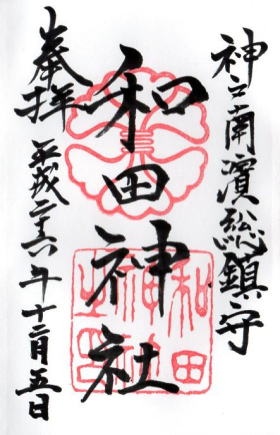 神戸南濱総鎮守
和田神社
奉拝
平成二十六年十二月五日
和田
神社
之印